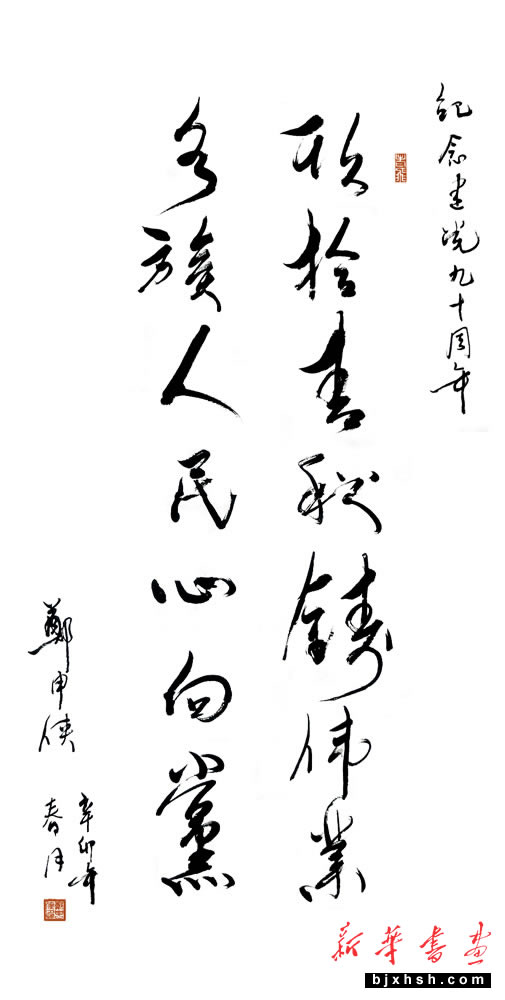 纪念建党九十周年
玖拾春秋铸伟业
各族人民心向黨
鄭申俠
辛卯年
春月
新華書画
bjxhsh.com